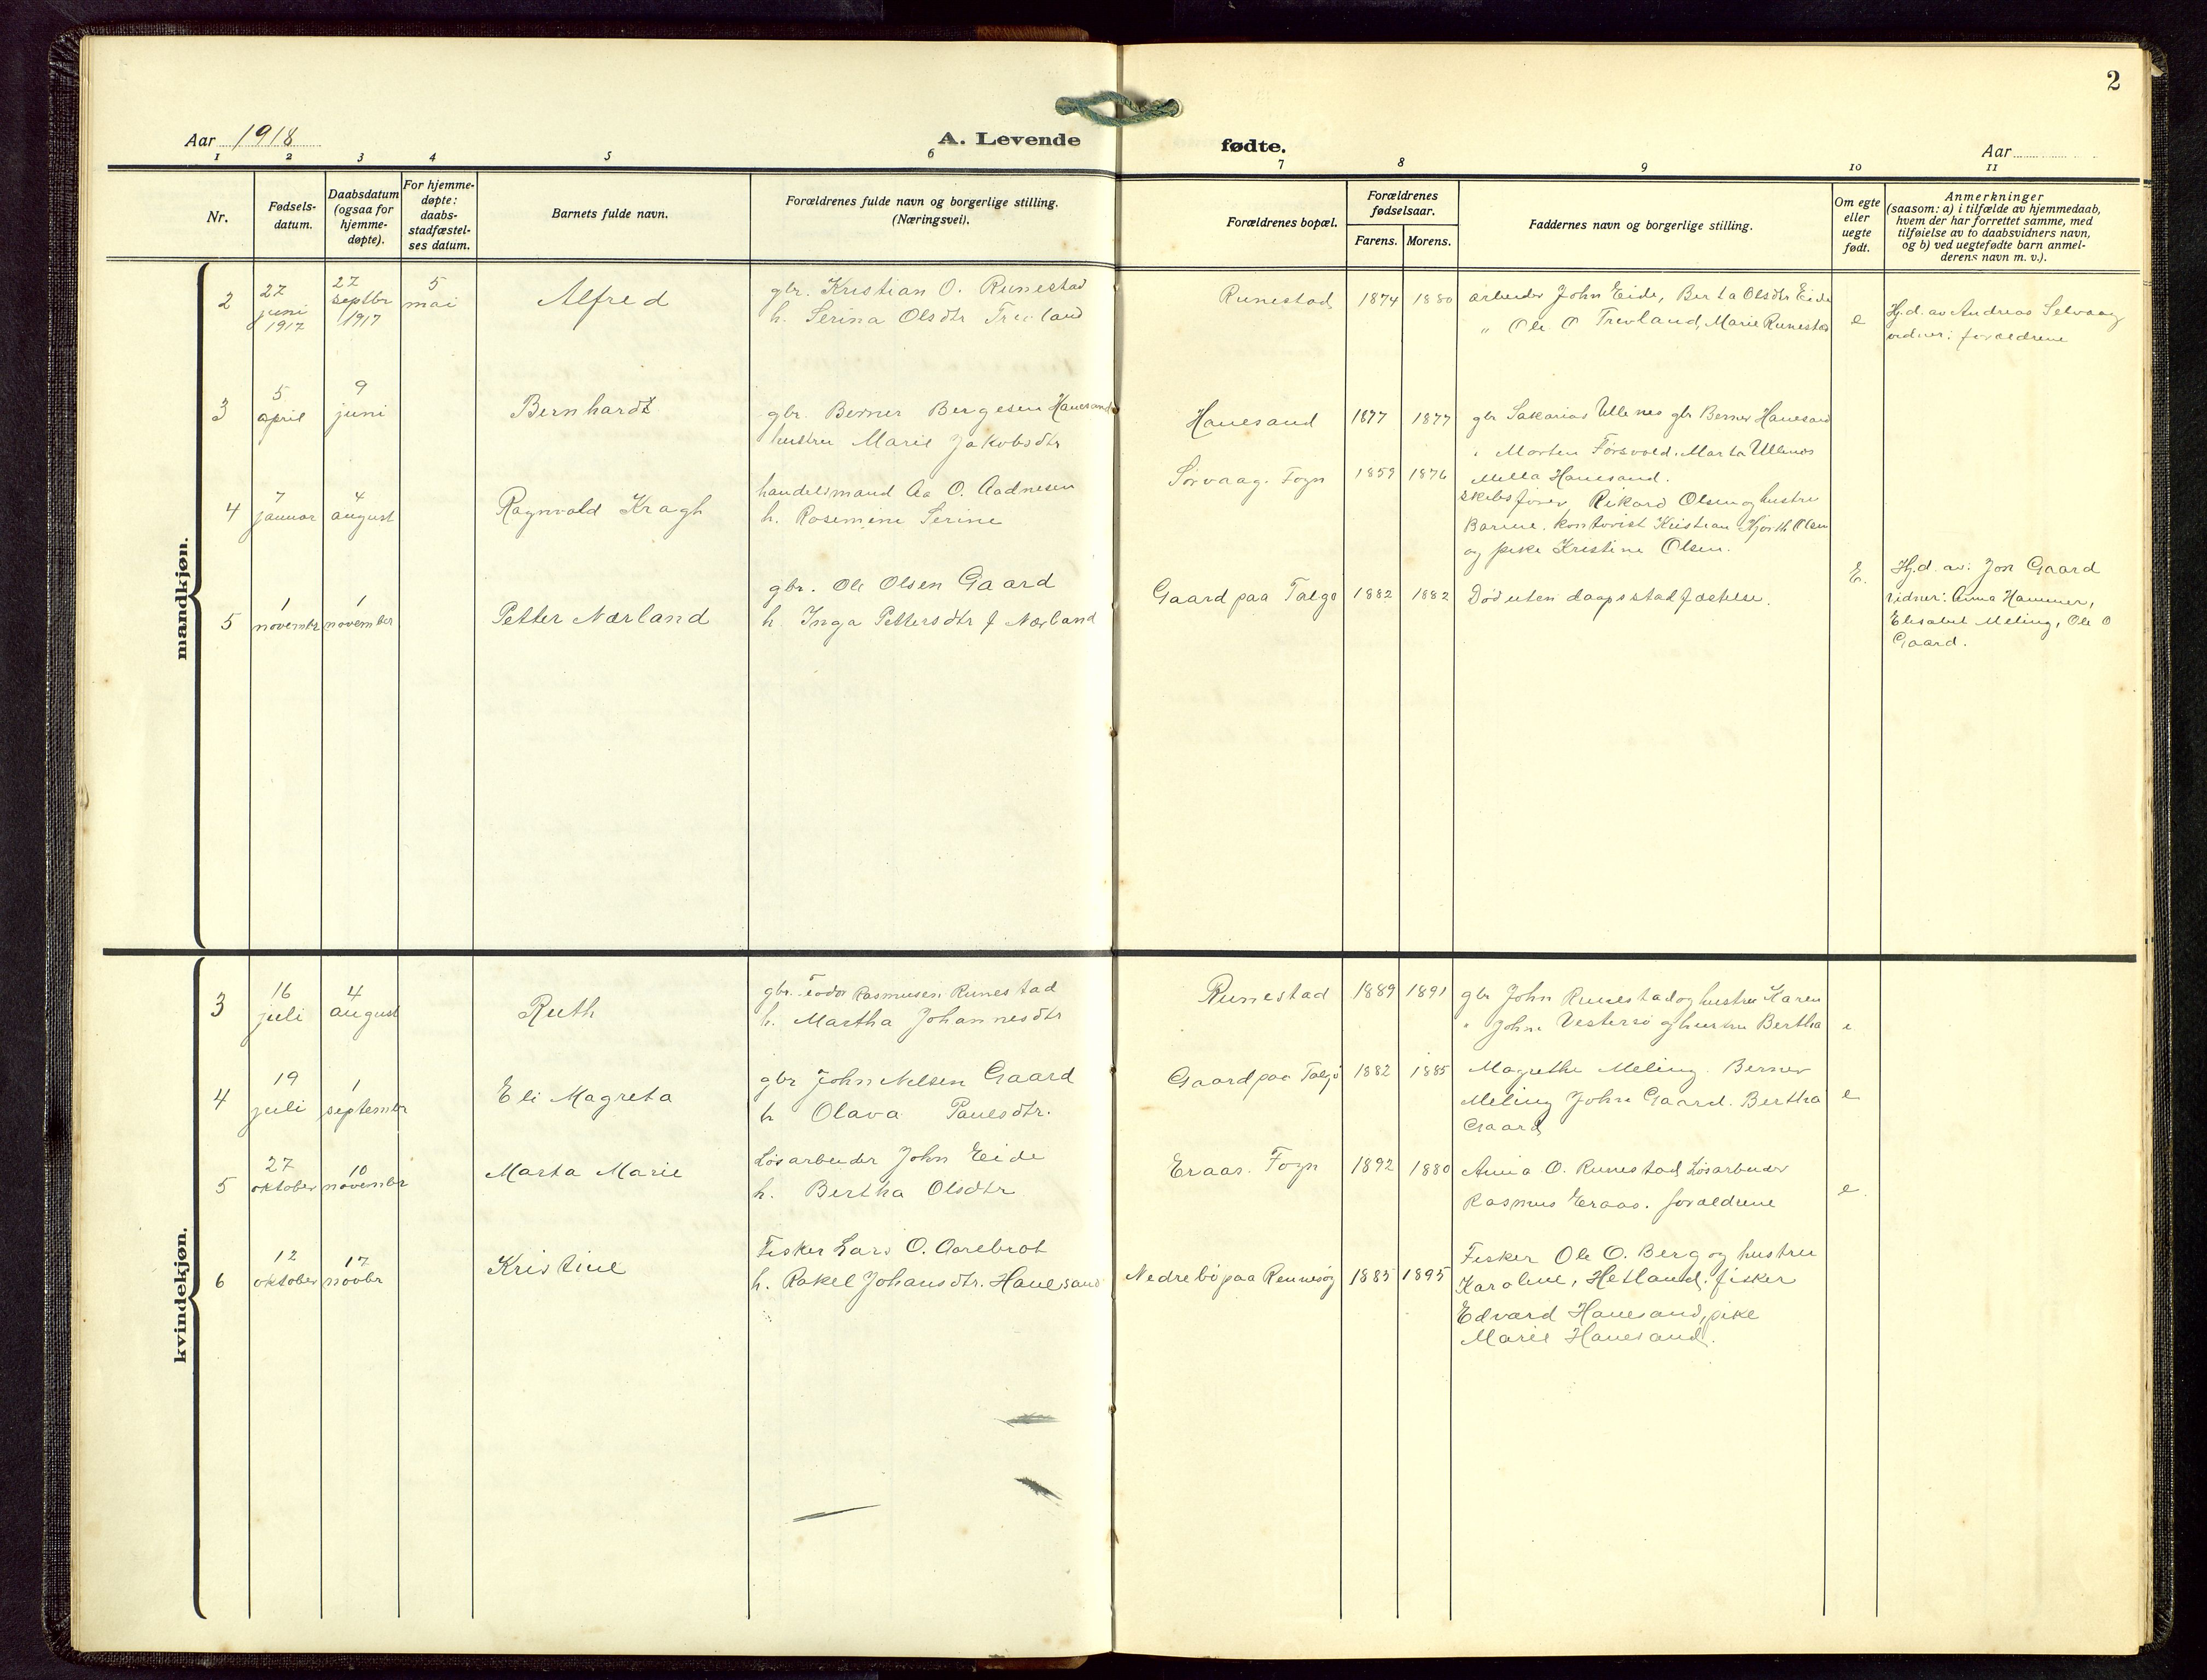 2
Aar 1918
A. Levende
fødte.
Aar
1 2 3 4 5 6 7 8 9 10 11
Nr.
Fødsels-
datum.
Daabsdatum
(ogsaa for
hjemme-
døpte).
For hjemme-
døpte:
daabs-
stadfæstel-
ses datum.
Barnets fulde navn.
Forældrenes fulde navn og borgerlige stilling.
(Næringsvei).
Forældrenes bopæl.
Forældrenes
fødselsaar.
Farens. Morens.
Faddernes navn og borgerlige stilling.
Om egte
eller
uegte
født.
Anmerkninger
(saasom: a) i tilfælde av hjemmedaab,
hvem der har forrettet samme, med
tilføielse av to daabsvidners navn,
og b) ved uegtefødte barn anmel-
derens navn m. v.).
mandkjøn.
2
27
juni
1917
27
septbr
1917
5
mai
Alfred
gbr. Kristian O. Runestad
h. Serina Olsdtr Trevland
Runestad
1874 1880
arbeider John Eide, Berta Olsdtr Eide
" Ole O Trevland, Marie Runestad
e
Hj.d. av Andreas Selvaag
vidner: forældrene
3
5
april
9
juni
Bernhardt
gbr. Berner Bergesen Hanesand
hustru Marie Jakobsdtr
Hanesand
1877 1877
gbr Sakarias Ullenes gbr Berner Hanesand
" Morten Førsvold. Marta Ullenes
Mella Hanesand.
4
7
januar
4
august
Ragnvald Kragh
handelsmand Aa O. Aadnesen
h. Rosemine Serine
Sørvaag. Fogn
1859 1876
Skibsfører Rikard Olsen og hustru
Barine. kontorist Kristian Hjorth Olsen
og pike Kristine Olsen.
5
1
novembr
1
november
Petter Nærland
gbr. Ole Olsen Gaard
h. Inga Pettersdtr f Nærland
Gaard paa Talgø
1882 1882
Død uten daapsstadfæstelse.
E.
Hj.d. av: Jon Gaard
vidner: Anna Hammer,
Elisabet Meling, Ole O
Gaard.
kvindekjøn.
3
16
juli
4
august
Ruth
gbr. Teodor Rasmusen Runestad
h. Martha Johannesdtr
Runestad
1889 1891
gbr John Runestad og hustru Karen
" John Vestersø og hustru Bertha
e
4
19
juli
1
septembr
Eli Magreta
gbr John Nelsen Gaard
h Olava Paulsdtr.
Gaard paa Talgø
1882 1885
Magrethe Meling. Berner
Meling John Gaard. Bertha
Gaard
e
5
27
oktober
10
novembr
Marta Marie
Løsarbeider John Eide
h. Bertha Olsdtr
Eraas. Fogn
1892 1880
Anna O. Runestad, Løsarbeider
Rasmus Eraas. forældrene
e.
6
12
oktober
17
novbr
Kristine
Fisker Lars O. Aarebrot
h. Rakel Johansdtr. Hanesand
Nedrebø paa Rennesøy
1885 1895
Fisker Ole O. Berg og hustru
Karoline, Hetland. fisker
Edvard Hanesand, pike
Marie Hanesand.